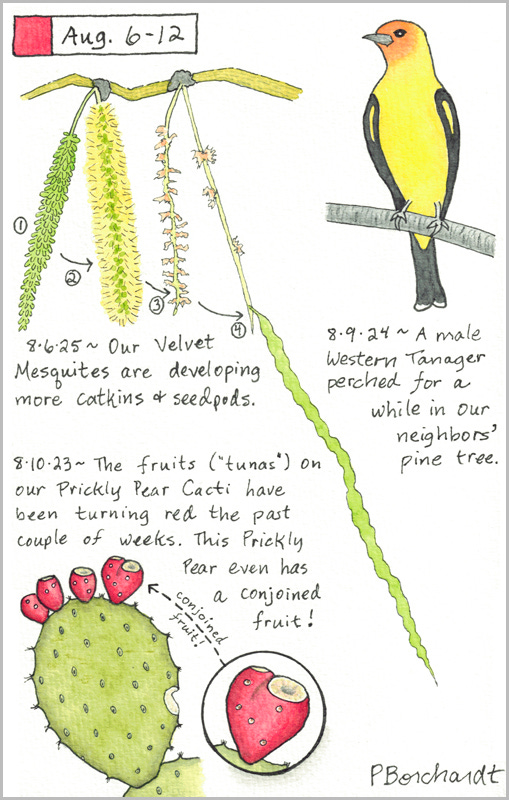 Aug. 6-12
①
②
③
④
8·6·25~ Our Velvet
Mesquites are developing
more catkins & seedpods.
8·9·24~ A male
Western Tanager
perched for a
while in our
neighbors'
pine tree.
8·10·23~ The fruits ("tunas") on
our Prickly Pear Cacti have
been turning red the past
couple of weeks. This Prickly
Pear even has
a conjoined
fruit!
conjoined
fruit!
PBorchardt